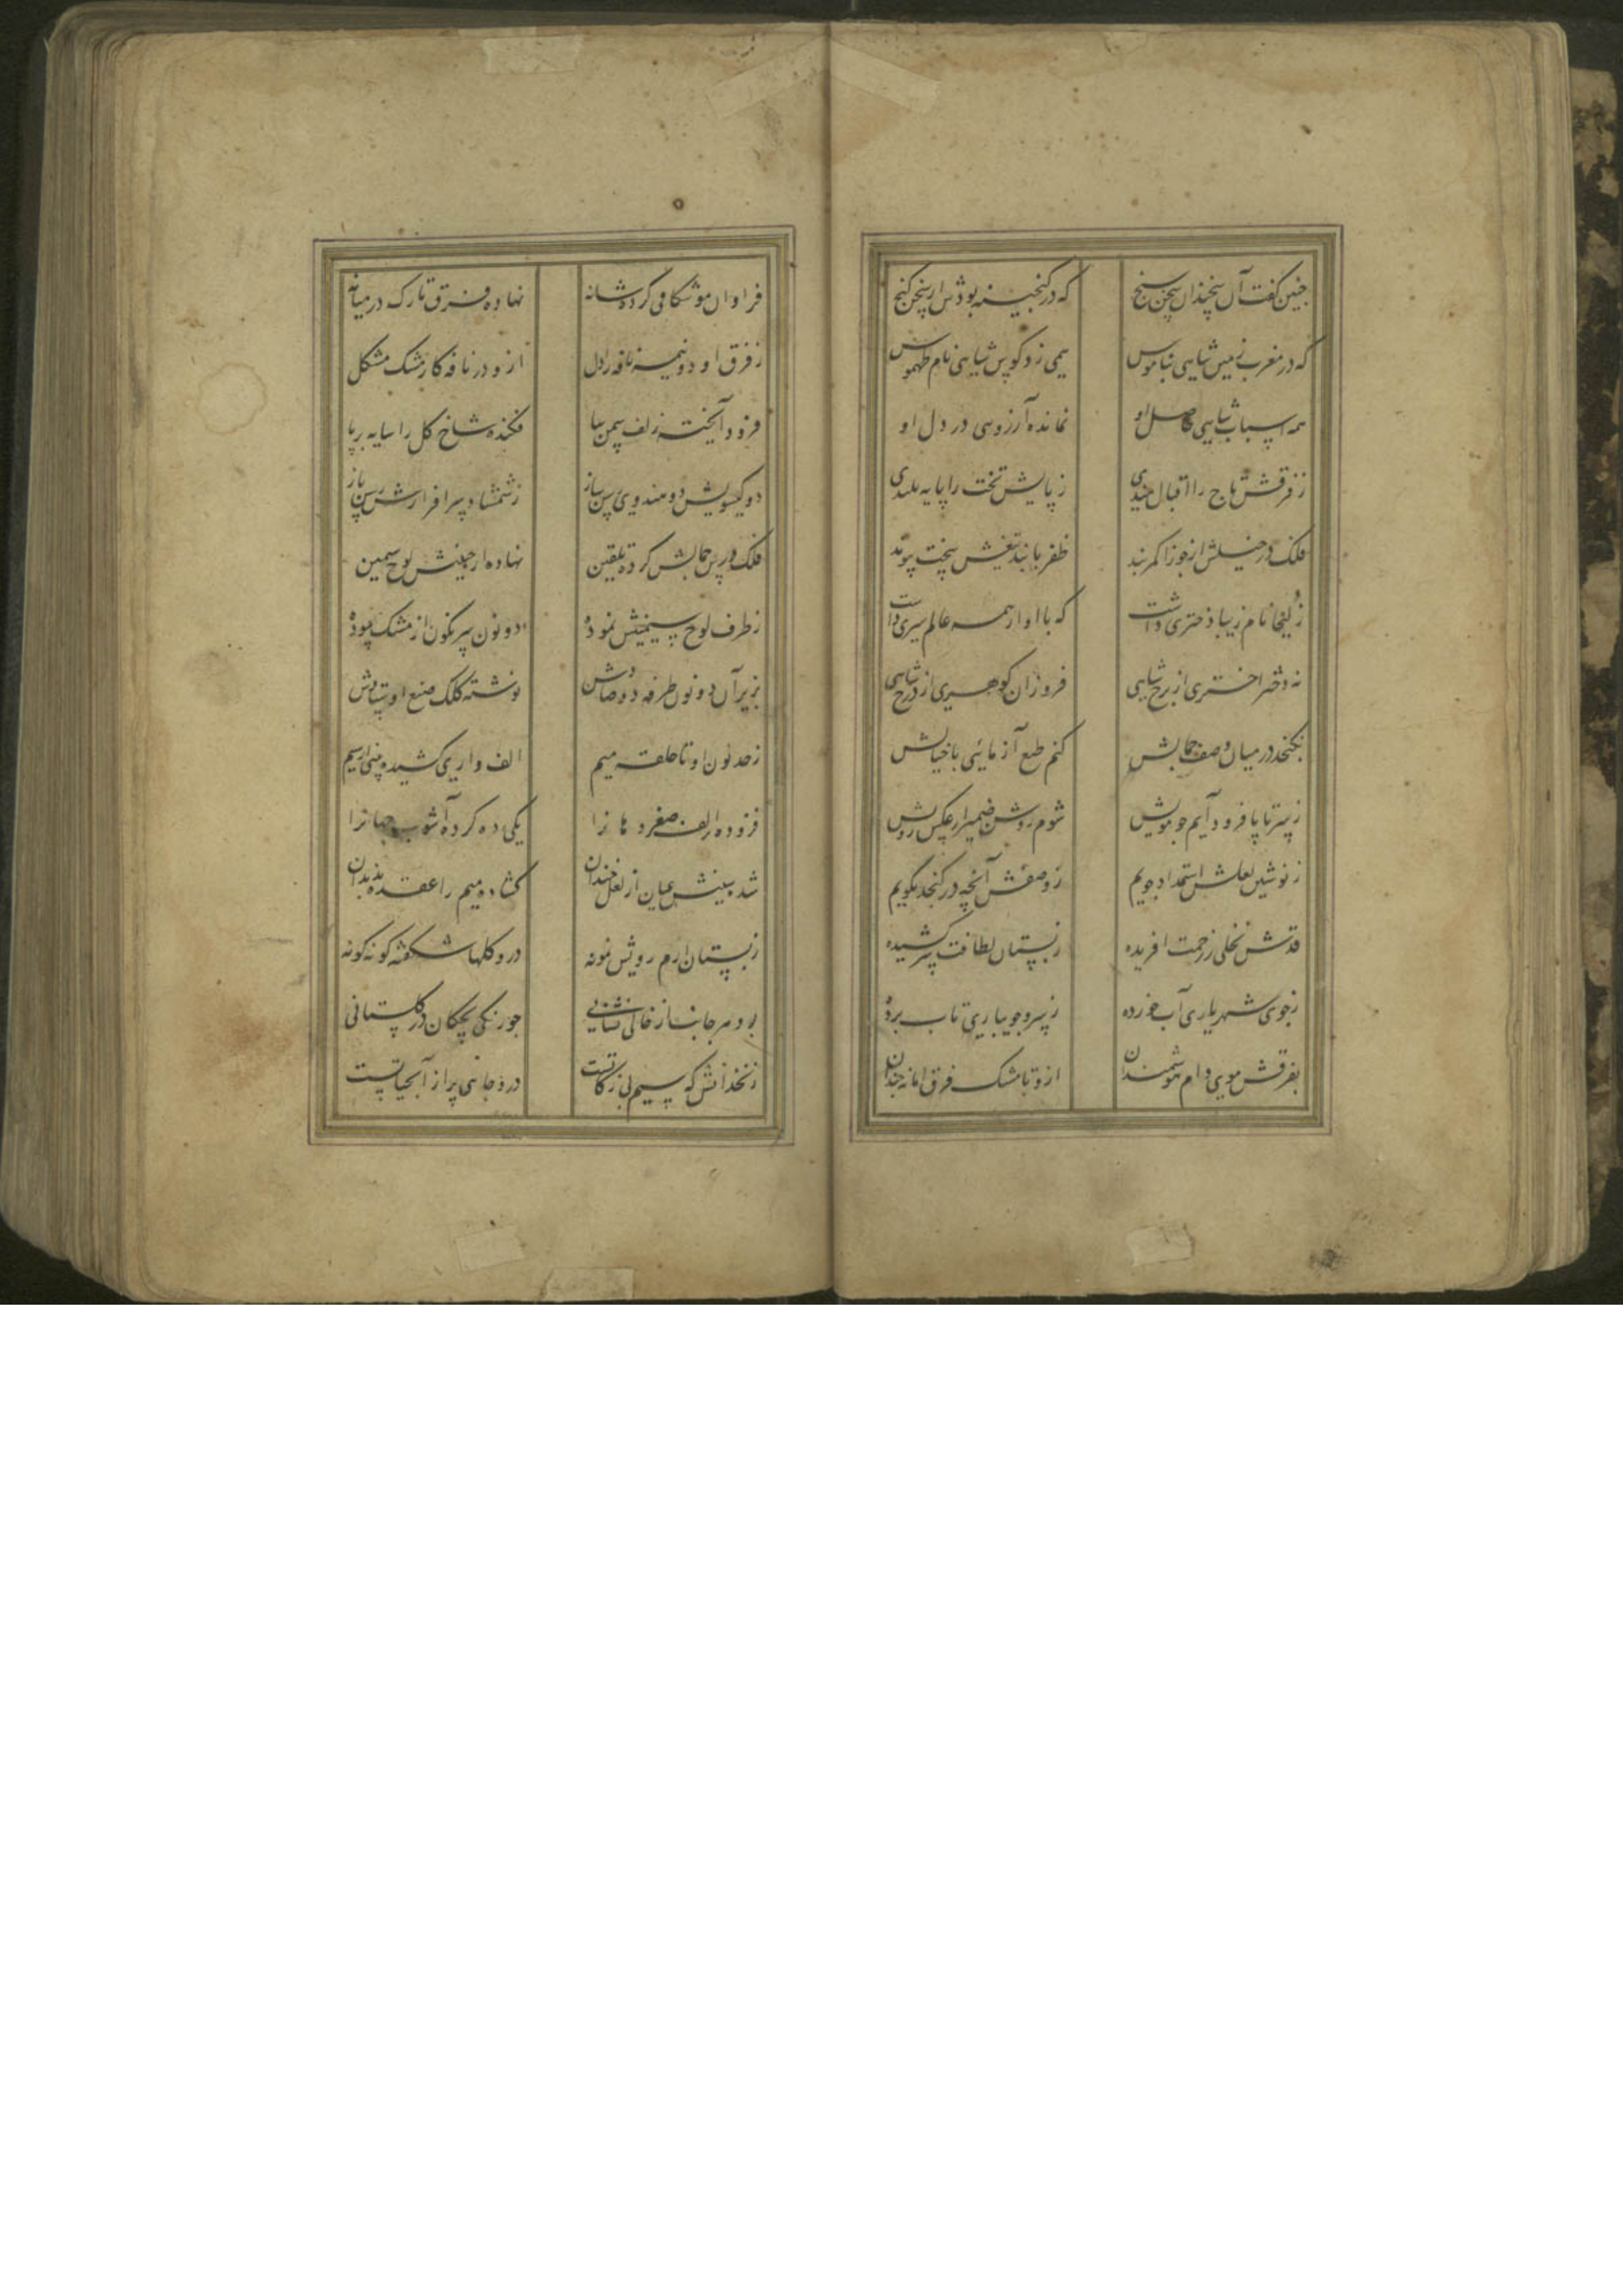 چنین گفت آن سخندان سخن سنج که در گنجینه بودش از سخن گنج
که در مغرب زمین شاهی بناموس همی زد کوس شاهی نام طیموس
همه اسباب شاهی حاصل او نمانده آرزوی در دل او
ز فرقش تاج را اقبال مندی ز پایش تخت را پایه بلندی
فلک در خیلش از جوزا کمربند ظفر با بند تیغش سخت پیوند
زلیخا نام زیبا دختری داشت که با او از همه عالم سری داشت
نه دختر اختری از برج شاهی فروزان گوهری از درج شاهی
نگنجد در میان وصف جمالش کنم طبع آزمائی با خیالش
ز سر تا پا فرود آیم چو مویش شوم روشن ضمیر از عکس رویش
ز نوشین لعلش استمداد جویم ز وصفش آنچه در گنجد بگویم
قدش نخلی ز رحمت آفریده ز بستان لطافت سر کشیده
ز جوی شهریاری آب خورده ز سرو جویباری تاب برده
بفرقش موی دام هوشمندان ازو تا مشک فرق اما نه چندان
فراوان موشکافی کرده شانه نهاده فرق تارک در میانه
ز فرق او دو نیمه نافه را دل ازو در نافه کار مشک مشکل
فرود آویخته زلف سمن سا فکنده شاخ گل را سایه بر پا
دو گیسویش دو هندوی رسن ساز ز شمشاد سرافرازش رسن باز
فلک درس جمالش کرده تلقین نهاده از جبینش لوح سیمین
ز طرف لوح سیمینش نموده دو نون سرنگون از مشک سوده
بزیر آن دو نون طرفه دو صادش نوشته کلک صنع اوستادش
ز حد نون او تا حلقه میم الف واری کشیده بینی از سیم
فزوده بر الف صفر دهان را یکی ده کرده آشوب جهانرا
شده سینش عیان از لعل خندان گشاده میم را عقده بدندان
ز بستان ارم رویش نمونه درو گلها شکفته گونه گونه
بر و هر جانب از خالی نشانی چو زنگی بچگان در گلستانی
زنخدانش که سیم بی زکاتست درو چاهی پر از آب حیاتست